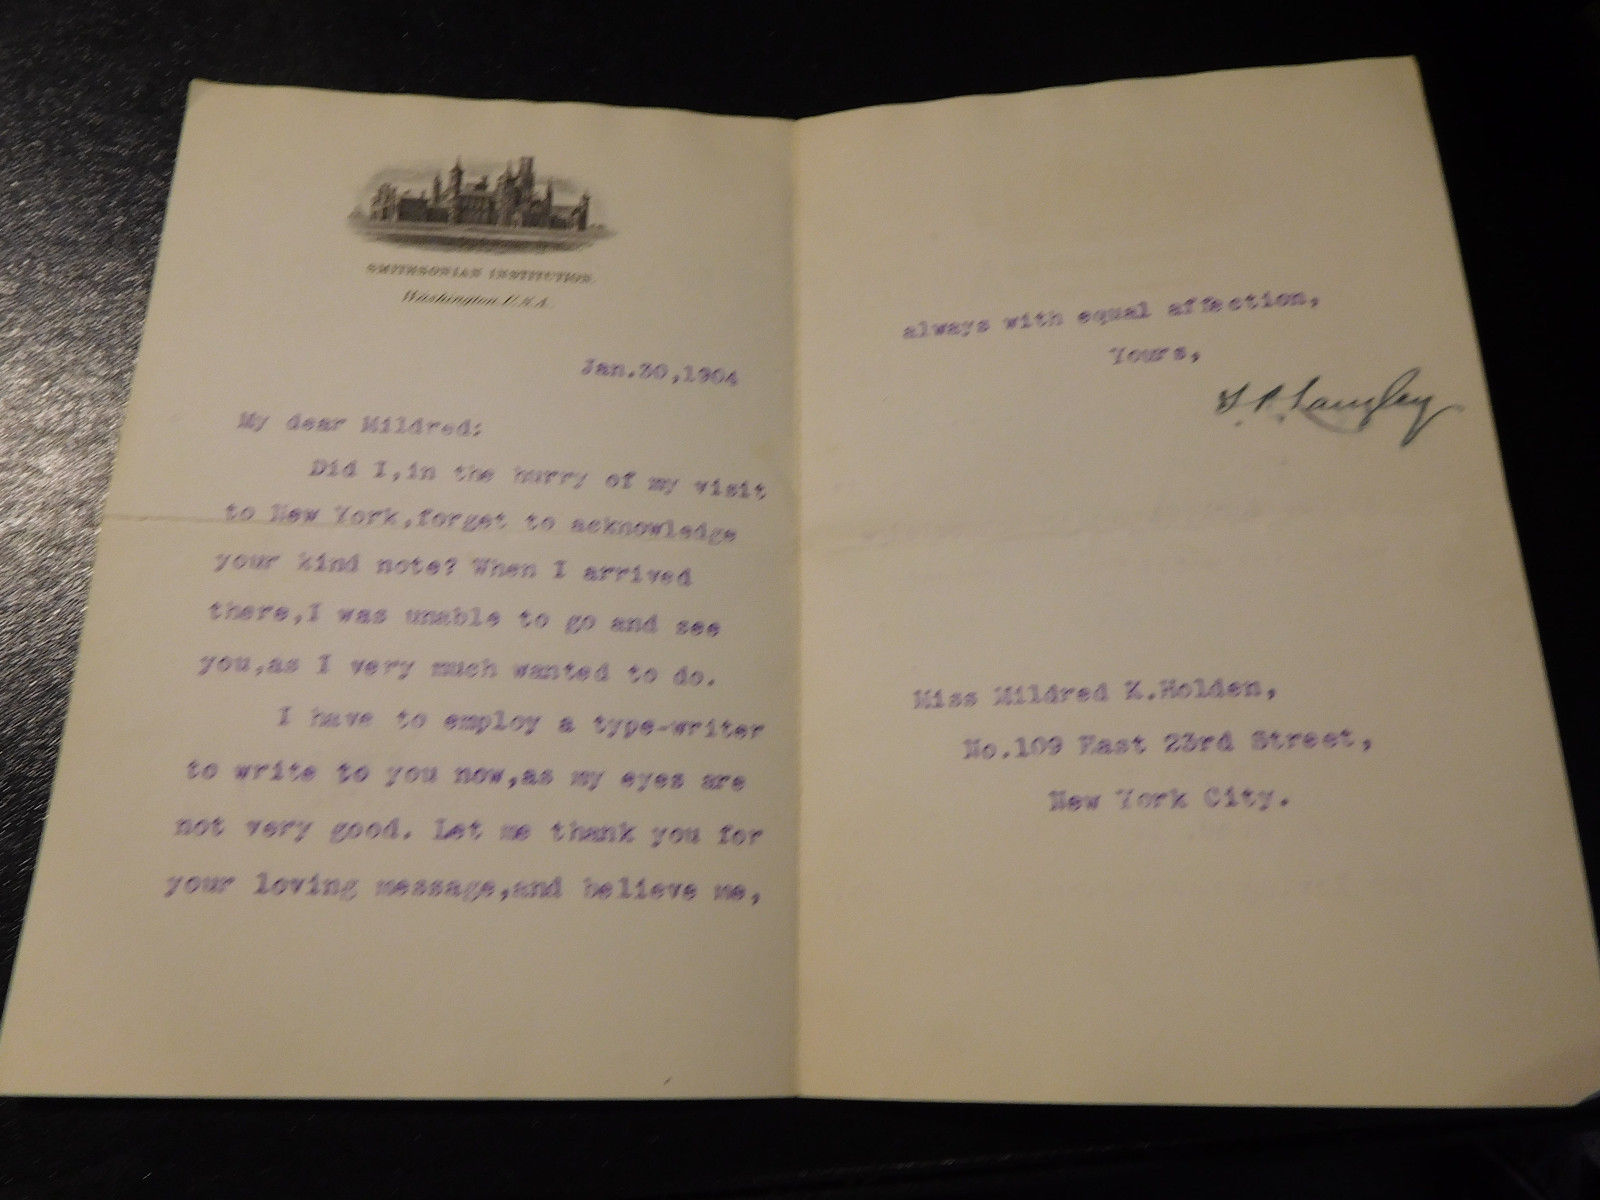 SMITHSONIAN INSTITUTION.
Washington, U.S.A.
Jan.30,1904
My dear Mildred:
Did I,in the hurry of my visit
to New York,forget to acknowledge
your kind note? When I arrived
there,I was unable to go and see
you,as I very much wanted to do.
I have to employ a type-writer
to write to you now,as my eyes are
not very good. Let me thank you for
your loving message,and believe me,
always with equal affection,
Yours,
S. P. Langley
Miss Mildred K.Holden,
No.109 East 23rd Street,
New York City.